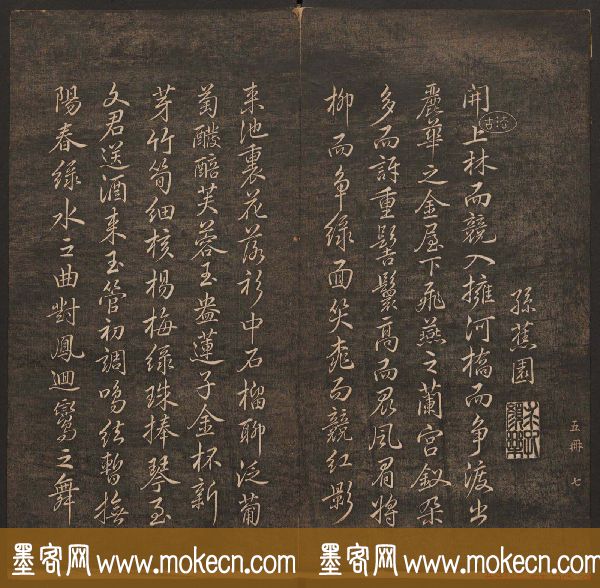 五冊 七
孫蕉園
開上林而競入擁河橋而爭渡出
麗華之金屋下飛燕之蘭宮釵朶
多而訝重髻鬟高而畏風眉將
柳而爭綠面笑桃而競紅影
来池裏花落衫中石榴聊泛葡
萄醱醅芙蓉玉盎蓮子金杯新
芽竹筍細核楊梅綠珠捧琴至
文君送酒来玉管初調鳴絃暫撫
陽春綠水之曲對鳳迴鸞之舞
墨客网 www.mokecn.com 墨客网 www.mokecn.com